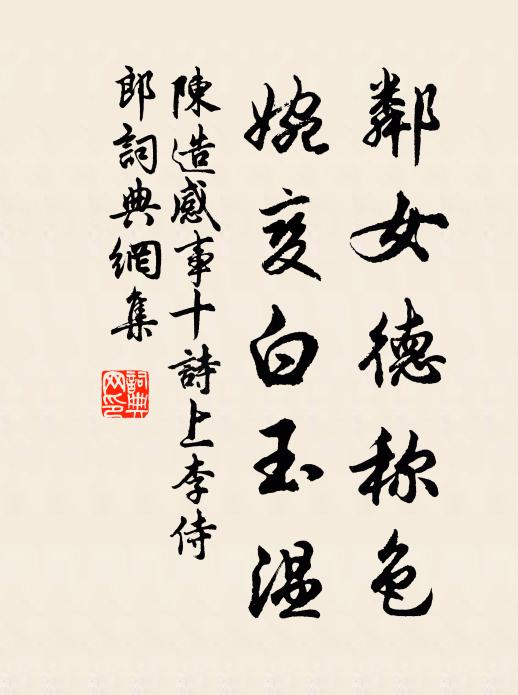 鄰女德称色
婉变白玉温
陳造感事十詩上李侍
郎詞典網集
詞典網印